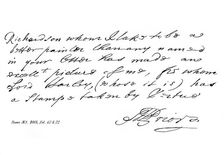 Richardson whom I take to be a
better painter than any named
in your letter has made an
excellt picture of me, for whom
Lord Harley, (whose it is) has
a Stamp taken by Vertue
MPrior